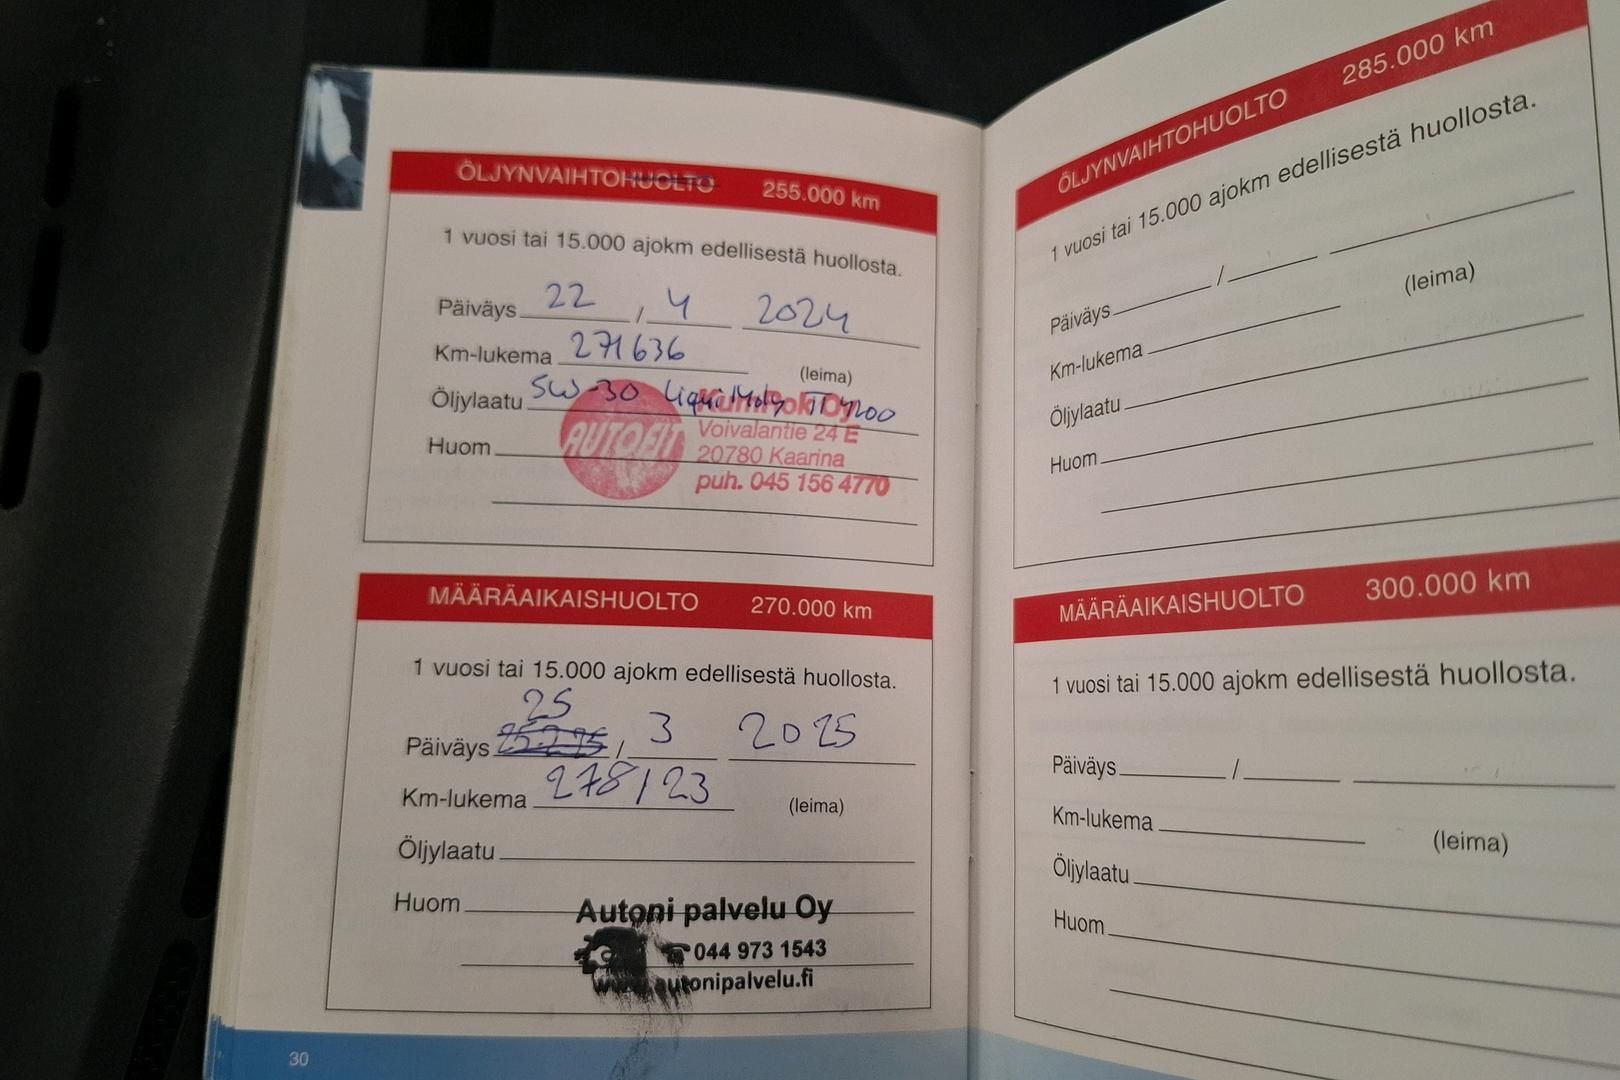 ÖLJYNVAIHTOHUOLTO 255.000 km
1 vuosi tai 15.000 ajokm edellisestä huollosta.
Päiväys 22 / 4 2024
Km-lukema 271636
(leima)
Öljylaatu 5W-30 Liqui Moly TT4200
Huom
KumiPok Oy
AUTOFIT
Voivalantie 24 E
20780 Kaarina
puh. 045 156 4770
MÄÄRÄAIKAISHUOLTO 270.000 km
1 vuosi tai 15.000 ajokm edellisestä huollosta.
25
Päiväys / 3 2025
Km-lukema 278123
(leima)
Öljylaatu
Huom
Autoni palvelu Oy
044 973 1543
www.autonipalvelu.fi
30
ÖLJYNVAIHTOHUOLTO 285.000 km
1 vuosi tai 15.000 ajokm edellisestä huollosta.
Päiväys /
Km-lukema (leima)
Öljylaatu
Huom
MÄÄRÄAIKAISHUOLTO 300.000 km
1 vuosi tai 15.000 ajokm edellisestä huollosta.
Päiväys /
Km-lukema (leima)
Öljylaatu
Huom